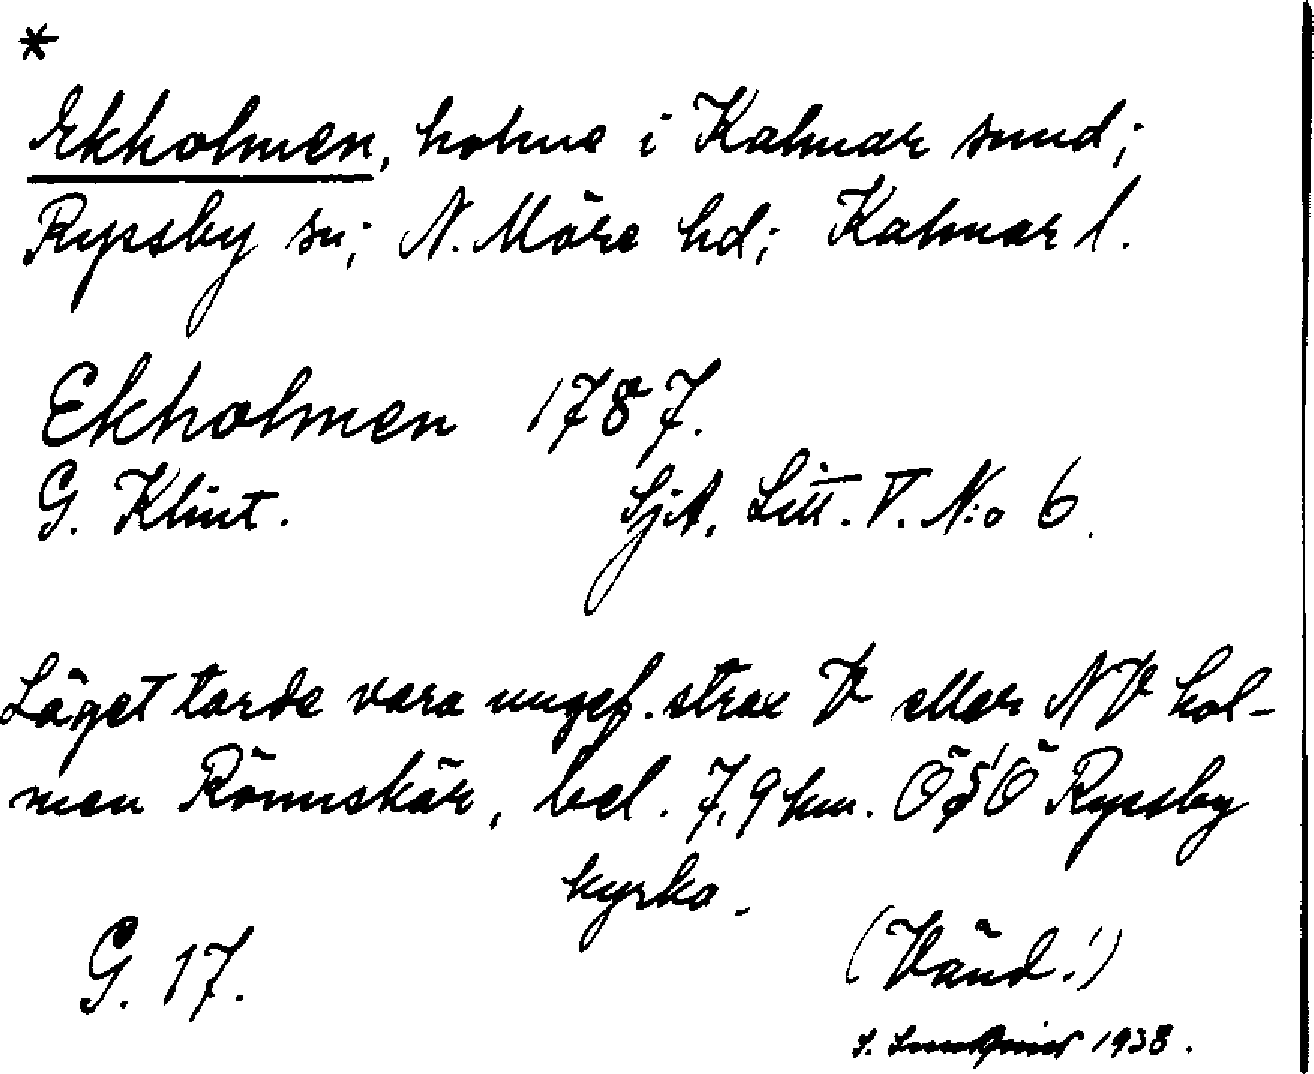 *
Ekholmen, holme i Kalmar sund;
Ryssby sn; N. Möre hd; Kalmar l.
Ekholmen 1787.
G. Klint. SjA. Litt. V. N:o 6.
Läget torde vara ungef. strax V eller NV hol-
men Rönnskär, bel. 7,9 km. ÖSÖ Ryssby
kyrka.
(Vänd!)
G. 17.
S. 1938.